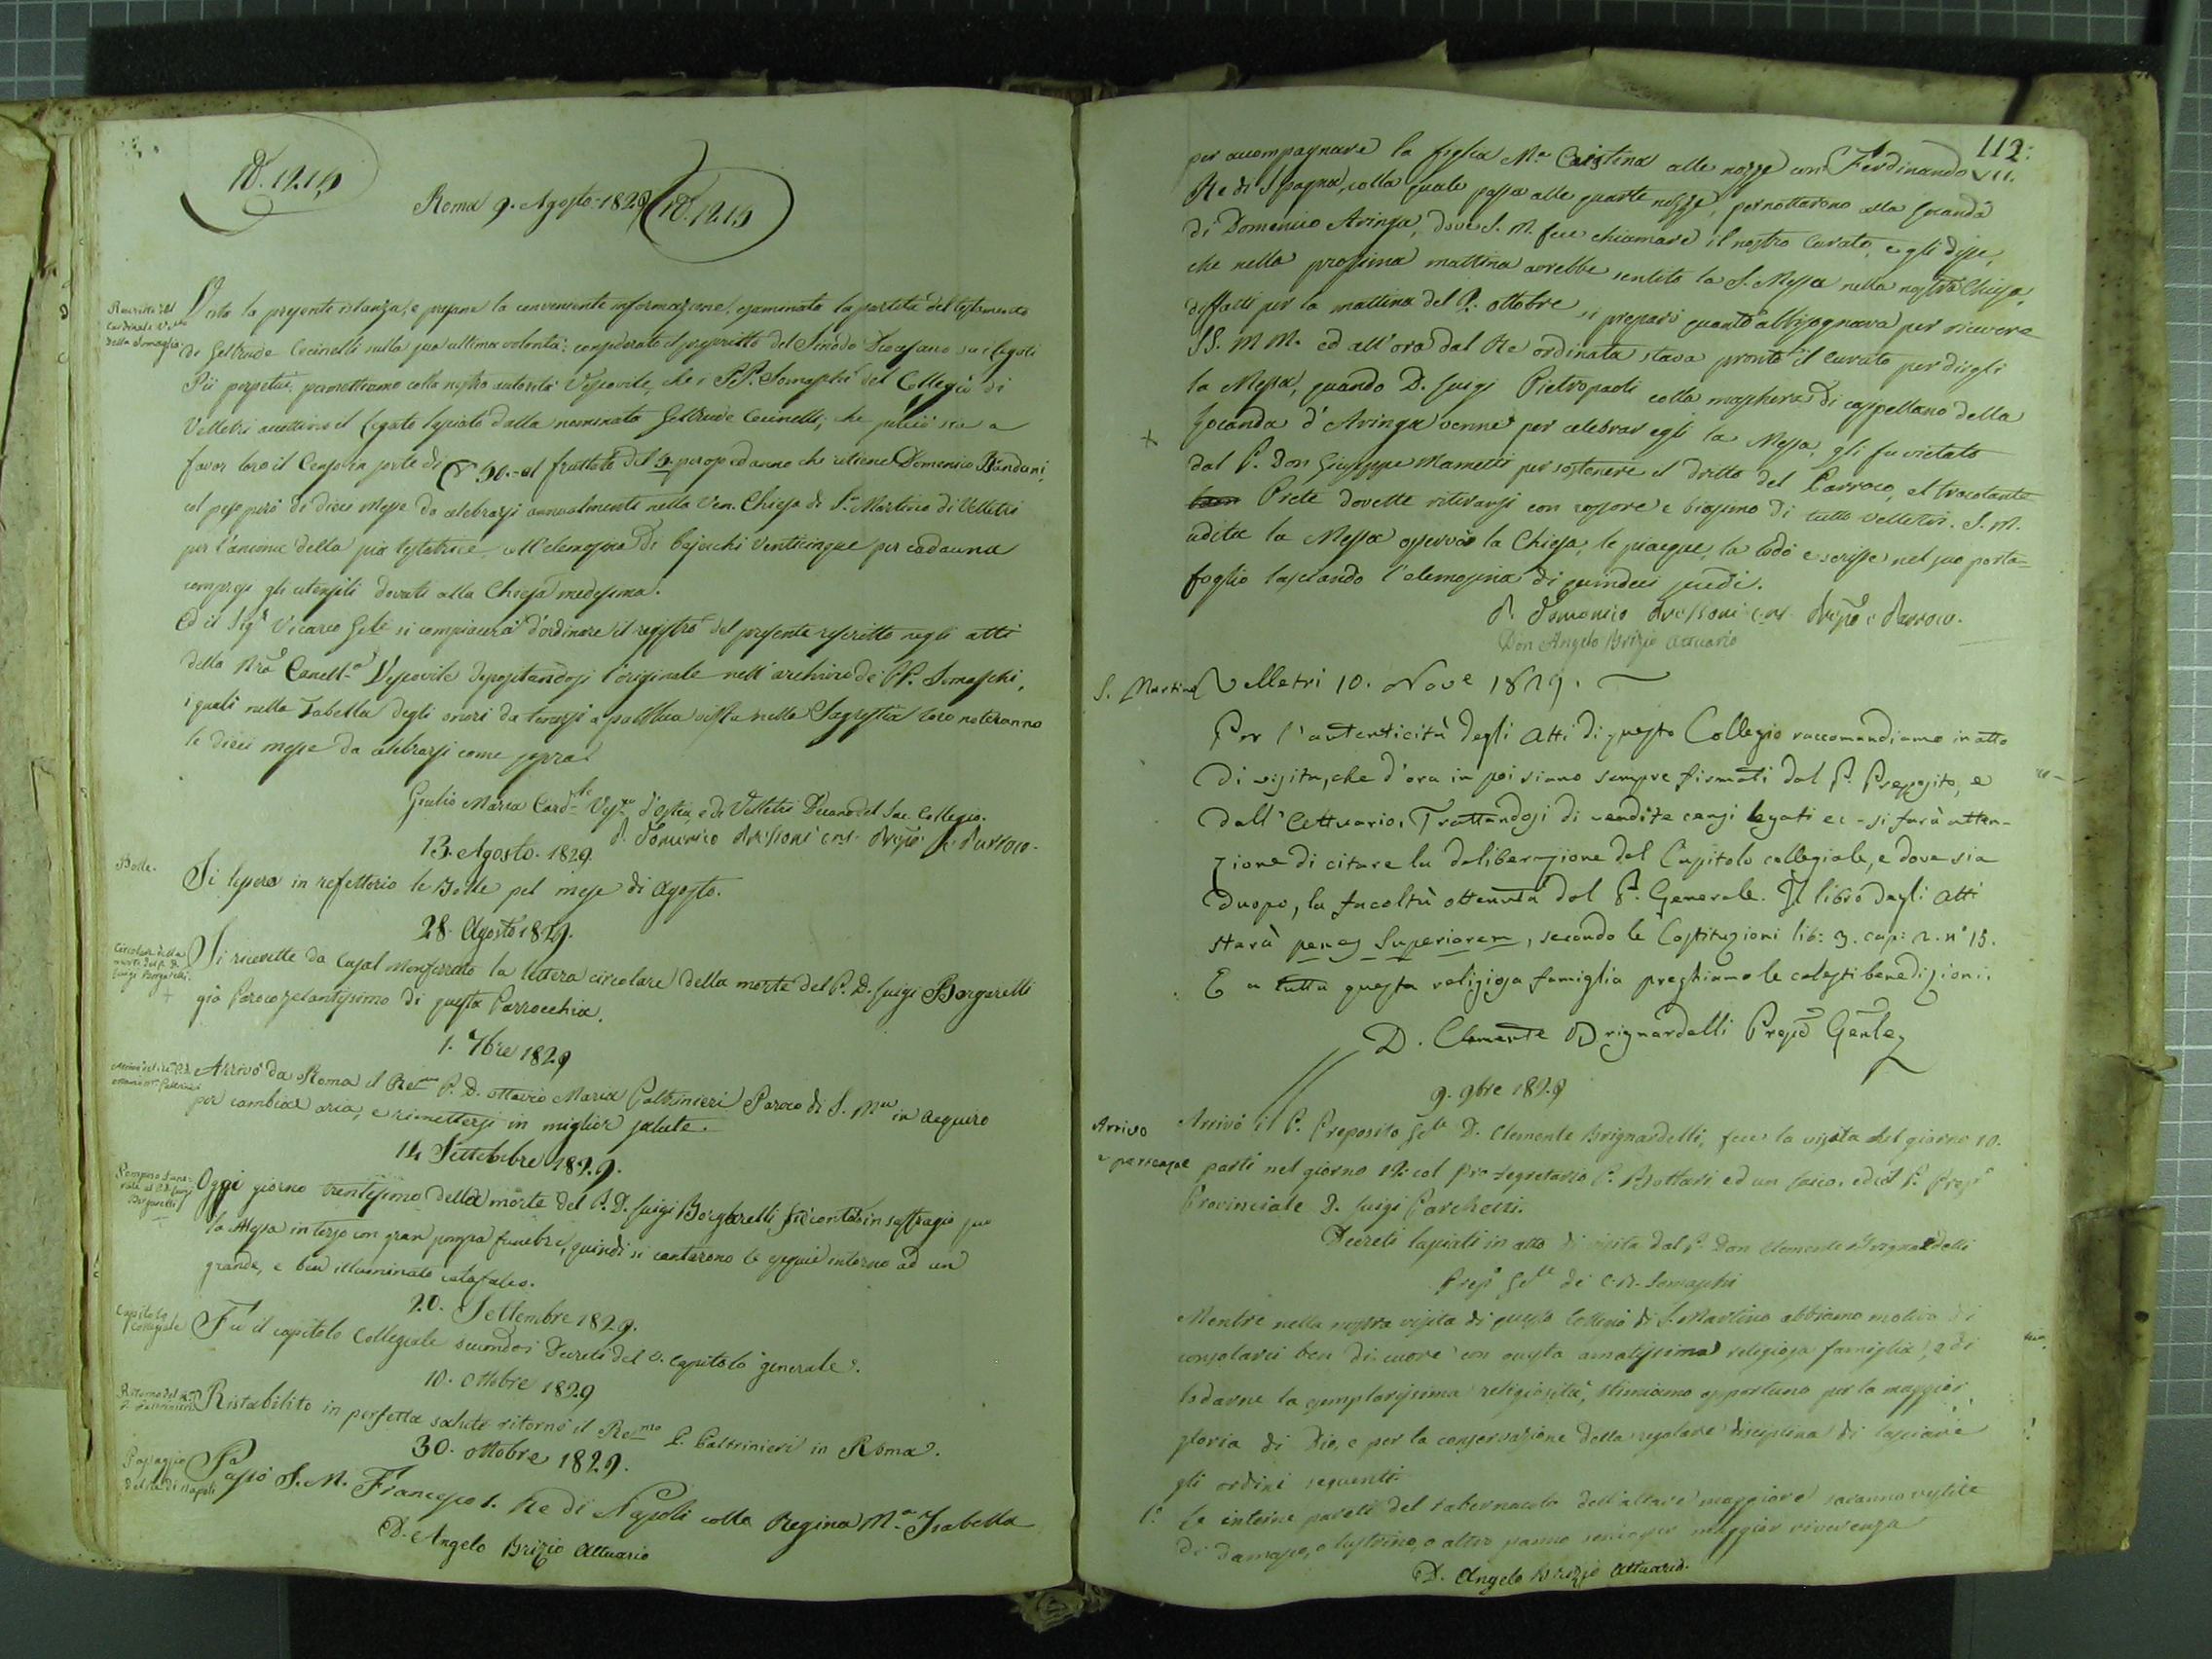 18.12.19
Roma 9. Agosto 1829 18.12.19
Rescritto del
Cardinale
della Somaglia
Vista la presente istanza, e presane la conveniente informazione, esaminata la partita del testamento
di Geltrude Cocinelli sulla sua ultima volontà: considerato il prescritto del Sinodo Diocesano sui legati
Pii perpetui, permettiamo colla nostra autorità Vescovile, che i PP. Somaschi del Collegio di
Velletri accettino il legato lasciato dalla nominata Geltrude Cocinelli, che
favor loro il Censo in sorte di 50.- al fruttato del 5. per 0/0 ed anno che ritiene Domenico Bandani,
col peso però di dieci Messe da celebrarsi annualmente nella Ven. Chiesa di S. Martino di Velletri
per l'anima della pia testatrice, coll'elemosina di bajocchi venticinque per cadauna
compresi gli utensili dovuti alla Chiesa medesima.
Ed il Sigr Vicario Gele si compiacerà d'ordinare il registro del presente rescritto negli atti
della Nra Cancella Vescovile depositandosi l'originale nell'archivio de' PP. Somaschi,
i quali nella Tabella degli oneri da tenersi a pubblica vista nella Sagrestia loro noteranno
le dieci messe da celebrarsi come sopra
Giulio Maria Cardle Vesvo d'Ostia, e di Velletri Decano del Sac. Collegio.
D. Domenico crs. Prepo e Parroco.
13. Agosto. 1829.
Bolle.
Si lessero in refettorio le Bolle pel mese di Agosto.
28. Agosto 1829.
Circolare della
morte del P. D.
Luigi Borgarelli.
+
Si ricevette da Casal Monferrato la lettera circolare della morte del P. D. Luigi Borgarelli
già Paroco zelantissimo di questa Parrocchia.
1. 7bre 1829
Arrivo del
Paltrinieri
Arrivò da Roma il Remo P. D. Ottavio Maria Paltrinieri Paroco di S. Ma in Aequiro
per cambiar aria, e rimettersi in miglior salute.
14 Settembre 1829.
Pompa fune-
rale al P. D. Luigi
Borgarelli
Oggi giorno trentesimo della morte del P. D. Luigi Borgarelli si cantò in suffragio suo
la Messa in terzo con gran pompa funebre, quindi si cantarono le esequie intorno ad un
grande, e ben illuminato catafalco.
20. Settembre 1829.
Capitolo
Collegiale
Fu il capitolo Collegiale secondo i Decreti del V. Capitolo generale.
10. Ottobre 1829
Ritorno del
P. Paltrinieri
Ristabilito in perfetta salute ritornò il Remo P. Paltrinieri in Roma.
30. Ottobre 1829.
Passaggio
del Re di Napoli
Passò S. M. Francesco I. Re di Napoli colla Regina Ma Isabella
D. Angelo Brizio Attuario
112.
per accompagnare la figlia Ma Cristina alle nozze con Ferdinando VII.
Re di Spagna, colla quale passa alle quarte nozze, pernottarono alla Locanda
di Domenico Aringa, dove S. M. fece chiamare il nostro Curato, e gli disse,
che nella prossima mattina avrebbe sentito la S. Messa nella nostra Chiesa.
diffatti per la mattina del ottobre si preparò quanto abbisognava per ricevere
SS. MM. ed all'ora dal Re ordinata stava pronto il curato per dirgli
la Messa, quando D. Luigi Pietropaoli colla maschera di cappellano della
+
Locanda d'Aringa venne per celebrar egli la Messa, gli fu vietato
dal P. Don Giuseppe Mametti per sostenere il dritto del Parroco, e il tracotante
Prete dovette ritirarsi con rossore e biasimo di tutto Velletri. S. M.
udita la Messa osservò la Chiesa, le piacque, la lodò e scrisse nel suo porta-
foglio lasciando l'elemosina di quindici scudi.
D. Domenico crs. Prepo e Parroco.
Don Angelo Brizio Attuario
S. Martino Velletri 10. Nove 1829.
Per l'autenticità degli Atti di questo Collegio raccomandiamo in atto
di visita, che d'ora in poi siano sempre firmati dal P. Preposito, e
dall'Attuario. Trattandosi di vendite censi legati ec. si farà atten-
zione di citare la deliberazione del Capitolo collegiale, e dove sia
duopo, la facoltà ottenuta dal P. Generale. Il libro degli Atti
starà penes Superiorem, secondo le Costituzioni lib: 3. cap: 2. n° 15.
E a tutta questa religiosa famiglia preghiamo le celesti benedizioni.
D. Clemente Brignardelli Prepo Genle
9. 9bre 1829
Arrivo
e partenza
Arrivò il P. Preposito Gele D. Clemente Brignardelli, fece la visita del giorno 10.
partì nel giorno 12. col pro-segretario P. Bottari ed un laico, ed il P. Prepo
Provinciale D. Luigi Parchetti.
Decreti lasciati in atto di visita dal P. Don Clemente Brignardelli
Prepo Gele de' C. R. Somaschi
Mentre nella nostra visita di questo Collegio di S. Martino abbiamo motivo di
consolarci ben di cuore con questa amatissima religiosa famiglia, e di
lodarne la esemplarissima religiosità, stimiamo opportuno per la maggior
gloria di Dio, e per la conservazione della regolare disciplina di lasciare
gli ordini seguenti.
1° Le interne pareti del tabernacolo dell'altare maggiore saranno vestite
di damasco, o lustrino, o altro panno serico per maggior riverenza
D. Angelo Brizio Attuario.